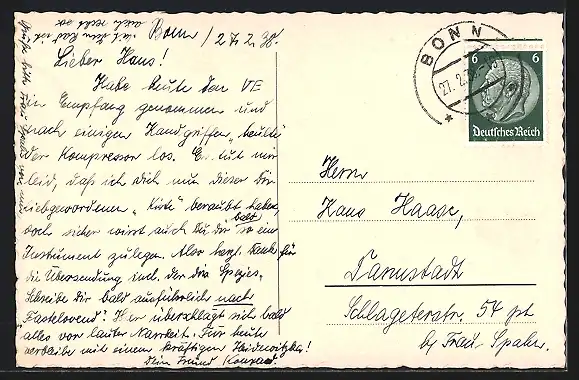 Bonn / 27.2.38.
Lieber Hans!
Habe heute den VE
in Empfang genommen und
nach einigen Handgriffen "heulte"
der Kompressor los. Es tut mir
leid, daß ich dich nun dieser dir
liebgewordenen "Kiste" beraubt habe,
doch sicher wirst auch du dir bald so ein
Instrument zulegen. Also herzl. Dank für
die Übersendung incl. der dra Spezies.
Schreibe dir bald ausführlich nach
"Fastelovend". Hier überschlägt sich bald
alles vor lauter Narretei. Für heute
verbleibe mit einem kräftigen Heidewitzka!
Dein Freund Konrad.
Grüße bitte Frau Spahn von mir
auch recht
BONN
27.2.38
6 6
Deutsches Reich
Herrn
Hans Haase,
Darmstadt
Schlageterstr. 54 pt
by Frau Spahn.